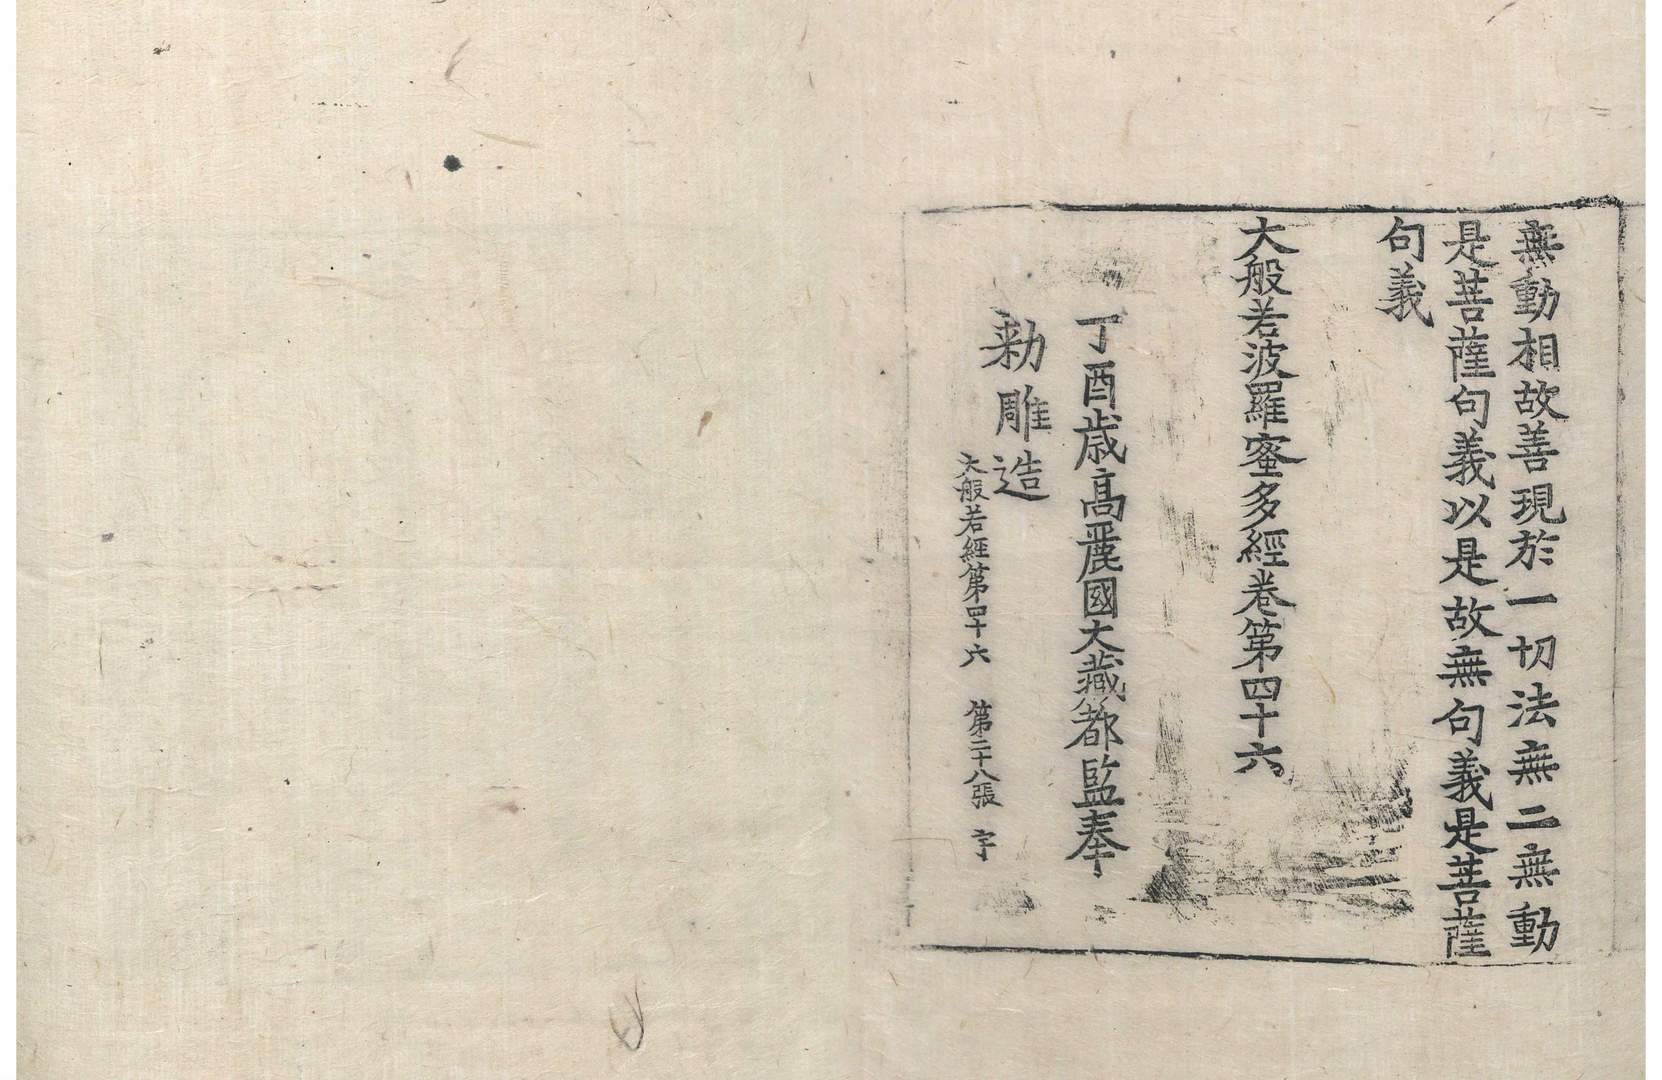 無動相故善現於一切法無二無動
是菩薩句義以是故無句義是菩薩
句義
大般若波羅蜜多經卷第四十六
丁酉歲高麗國大藏都監奉
勅雕造
大般若經第四十六 第二十八張 宇